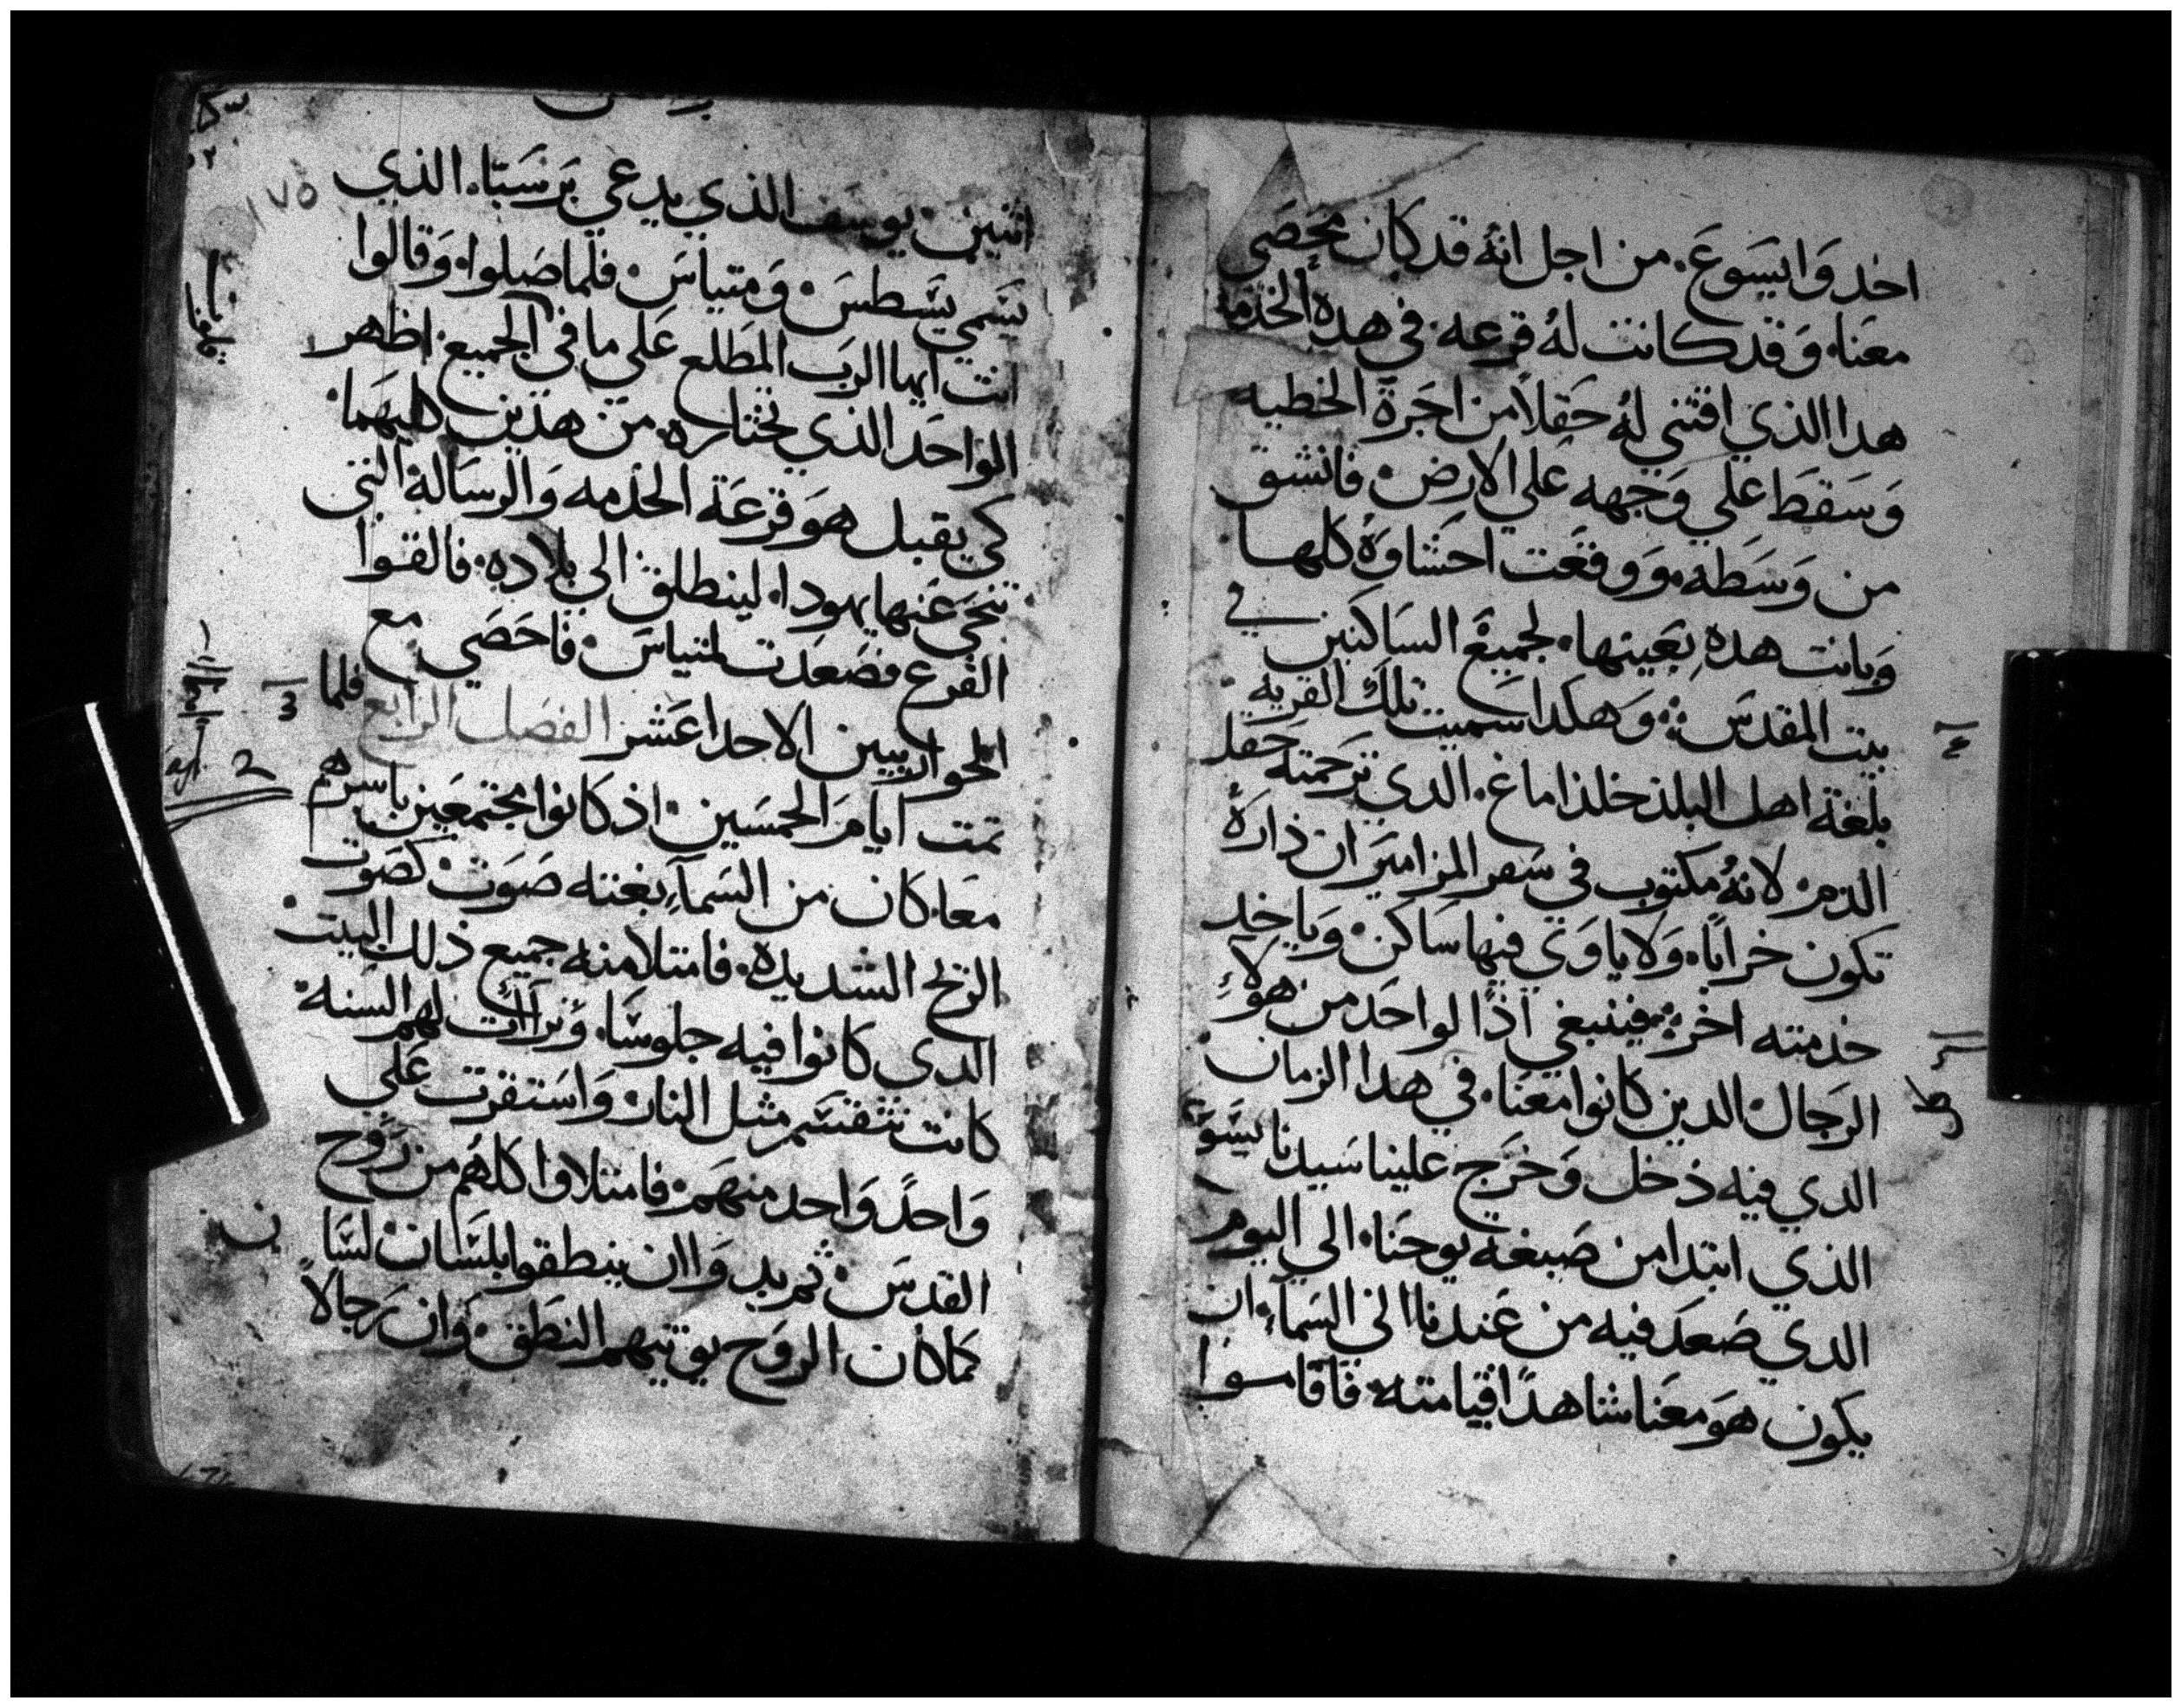 اخدوا يسوع. من اجل انه قد كان محصي
معنا. وقد كانت له قرعه. في هده الخدمه
هدا الذي اقتني له حقلاً من اجرة الخطيه
وسقط علي وجهه علي الارض. فانشق
من وسطه. ووقعت احشاوه كلها.
وبانت هده بعينها. لجميع الساكنين في
بيت المقدس. وهكدا سميت تلك القريه.
بلغة اهل البلد خلذاماغ. الدي ترجمته حقل
الدم. لانه مكتوب في سفر المزامير ان ذاره
تكون خرابًا. ولا ياوي فيها ساكن. وياخد
خدمته اخر. فينبغي اذًا لواحد من هولاءِ
الرجال الدين كانوا معنا. في هدا الزمان.
الدي فيه ذخل وخرج علينا سيدنا يسوع
الذي ابتدا من صبغة يوحنا. الي اليوم
الدي صعد فيه من عندنا الي السماء. ان
يكون هو معنا شاهدًا قيامته. فاقاموا
١٧٥
اثنين. يوسف الذي يدعي برسبّا. الذي
يسمي يسطس. ومتياس. فلما صلوا. وقالوا
انت ايها الرب المطلع علي ما في الجميع. اظهر
الواحد الذي تختاره. من هذين كليهما.
كي يقبل هو قرعة الخذمه والرساله التي
تنحي عنها يهودا. لينطلق الي بلاده. فالقوا
القرع فصعدت لمتياس. فاحصي مع
الحواريين الاحد عشر الفصل الرابع فلما
تمت ايام الخمسين. اذ كانوا مجتمعين باسرهم
معا. كان من السماءِ بغته صوت كصوت
الريح الشديده. فامتلا منه جميع ذلك البيت.
الدي كانوا فيه جلوسًا. وتراات لهم السنه.
كانت تتقسم مثل النار. واستقرت علي
واحدً واحد منهم. فامتلاوا كلهم من روح
القدس. ثم بدوا ان ينطقوا بلسان لسان
كما كان الروح يوتيهم النطق. وان رجالاً